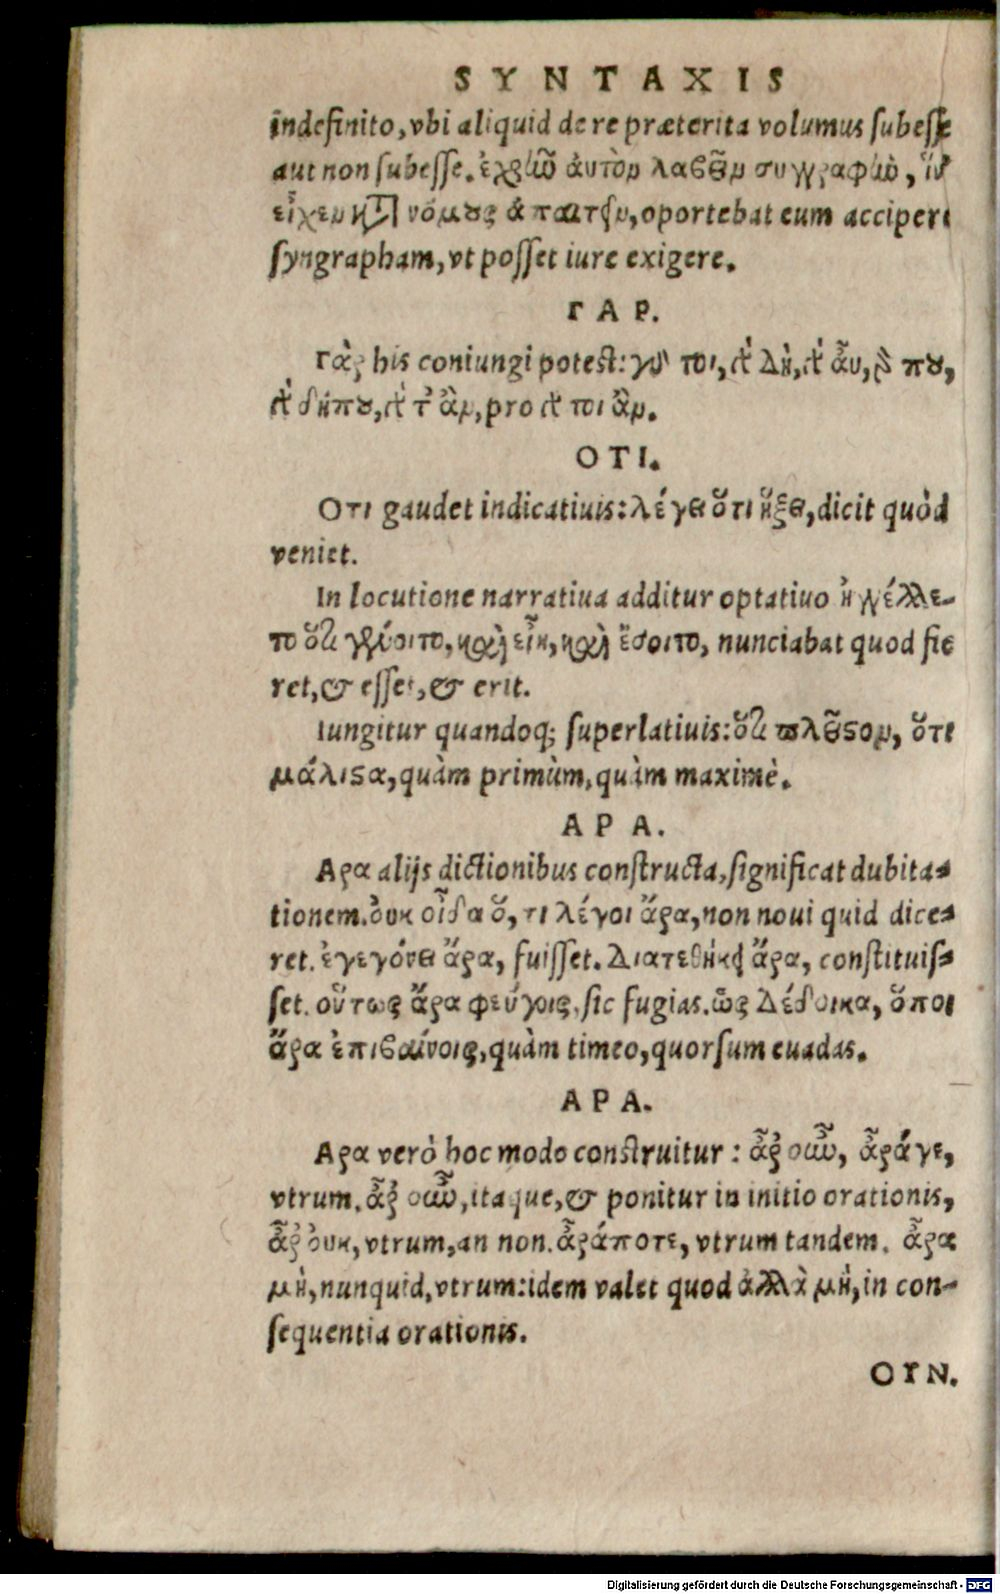 SYNTAXIS
indefinito, vbi aliquid de re præterita volumus subesse
aut non subesse. ἐχρῆν ἀυτὸν λαβεῖν συγγραφὴν, ἵν'
εἶχεν κτ' νόμους ἀπαιτεῖν, oportebat eum accipere
syngrapham, vt posset iure exigere.
ΓΑΡ.
Γὰρ his coniungi potest: γάρ τοι, γὰρ δὴ, γὰρ ἂν, γὰρ που,
γὰρ δήπου, γὰρ τ' ἂν, pro γὰρ τοι ἂν.
ΟΤΙ.
Οτι gaudet indicatiuis: λέγει ὅτι ἥξει, dicit quòd
veniet.
In locutione narratiua additur optatiuo ἠγγέλλε-
το ὅτι γένοιτο, καὶ εἴη, καὶ ἔσοιτο, nunciabat quod fie
ret, & esset, & erit.
Iungitur quandoq; superlatiuis: ὅτι πλεῖστον, ὅτι
μάλιστα, quàm primùm, quàm maximè.
ΑΡΑ.
Αρα alijs dictionibus constructa, significat dubita-
tionem. ὀυκ οἶδα ὅ, τι λέγοι ἄρα, non noui quid dice-
ret. ἐγεγόνει ἄρα, fuisset. Διατεθήκει ἄρα, constituis-
set. οὕτως ἄρα φεύγοις, sic fugias. ὡς Δέδοικα, ὅποι
ἄρα ἐπιβαίνοις, quàm timeo, quorsum euadas.
ΑΡΑ.
Αρα verò hoc modo construitur: ἆρ' οὖν, ἆράγε,
vtrum. ἆρ' οὖν, itaque, & ponitur in initio orationis,
ἆρ' ὀυκ, vtrum, an non. ἆράποτε, vtrum tandem. ἆρα
μὴ, nunquid, vtrum: idem valet quod ἀλλὰ μὴ, in con-
sequentia orationis.
ΟΥΝ.
Digitalisierung gefördert durch die Deutsche Forschungsgemeinschaft - DFG